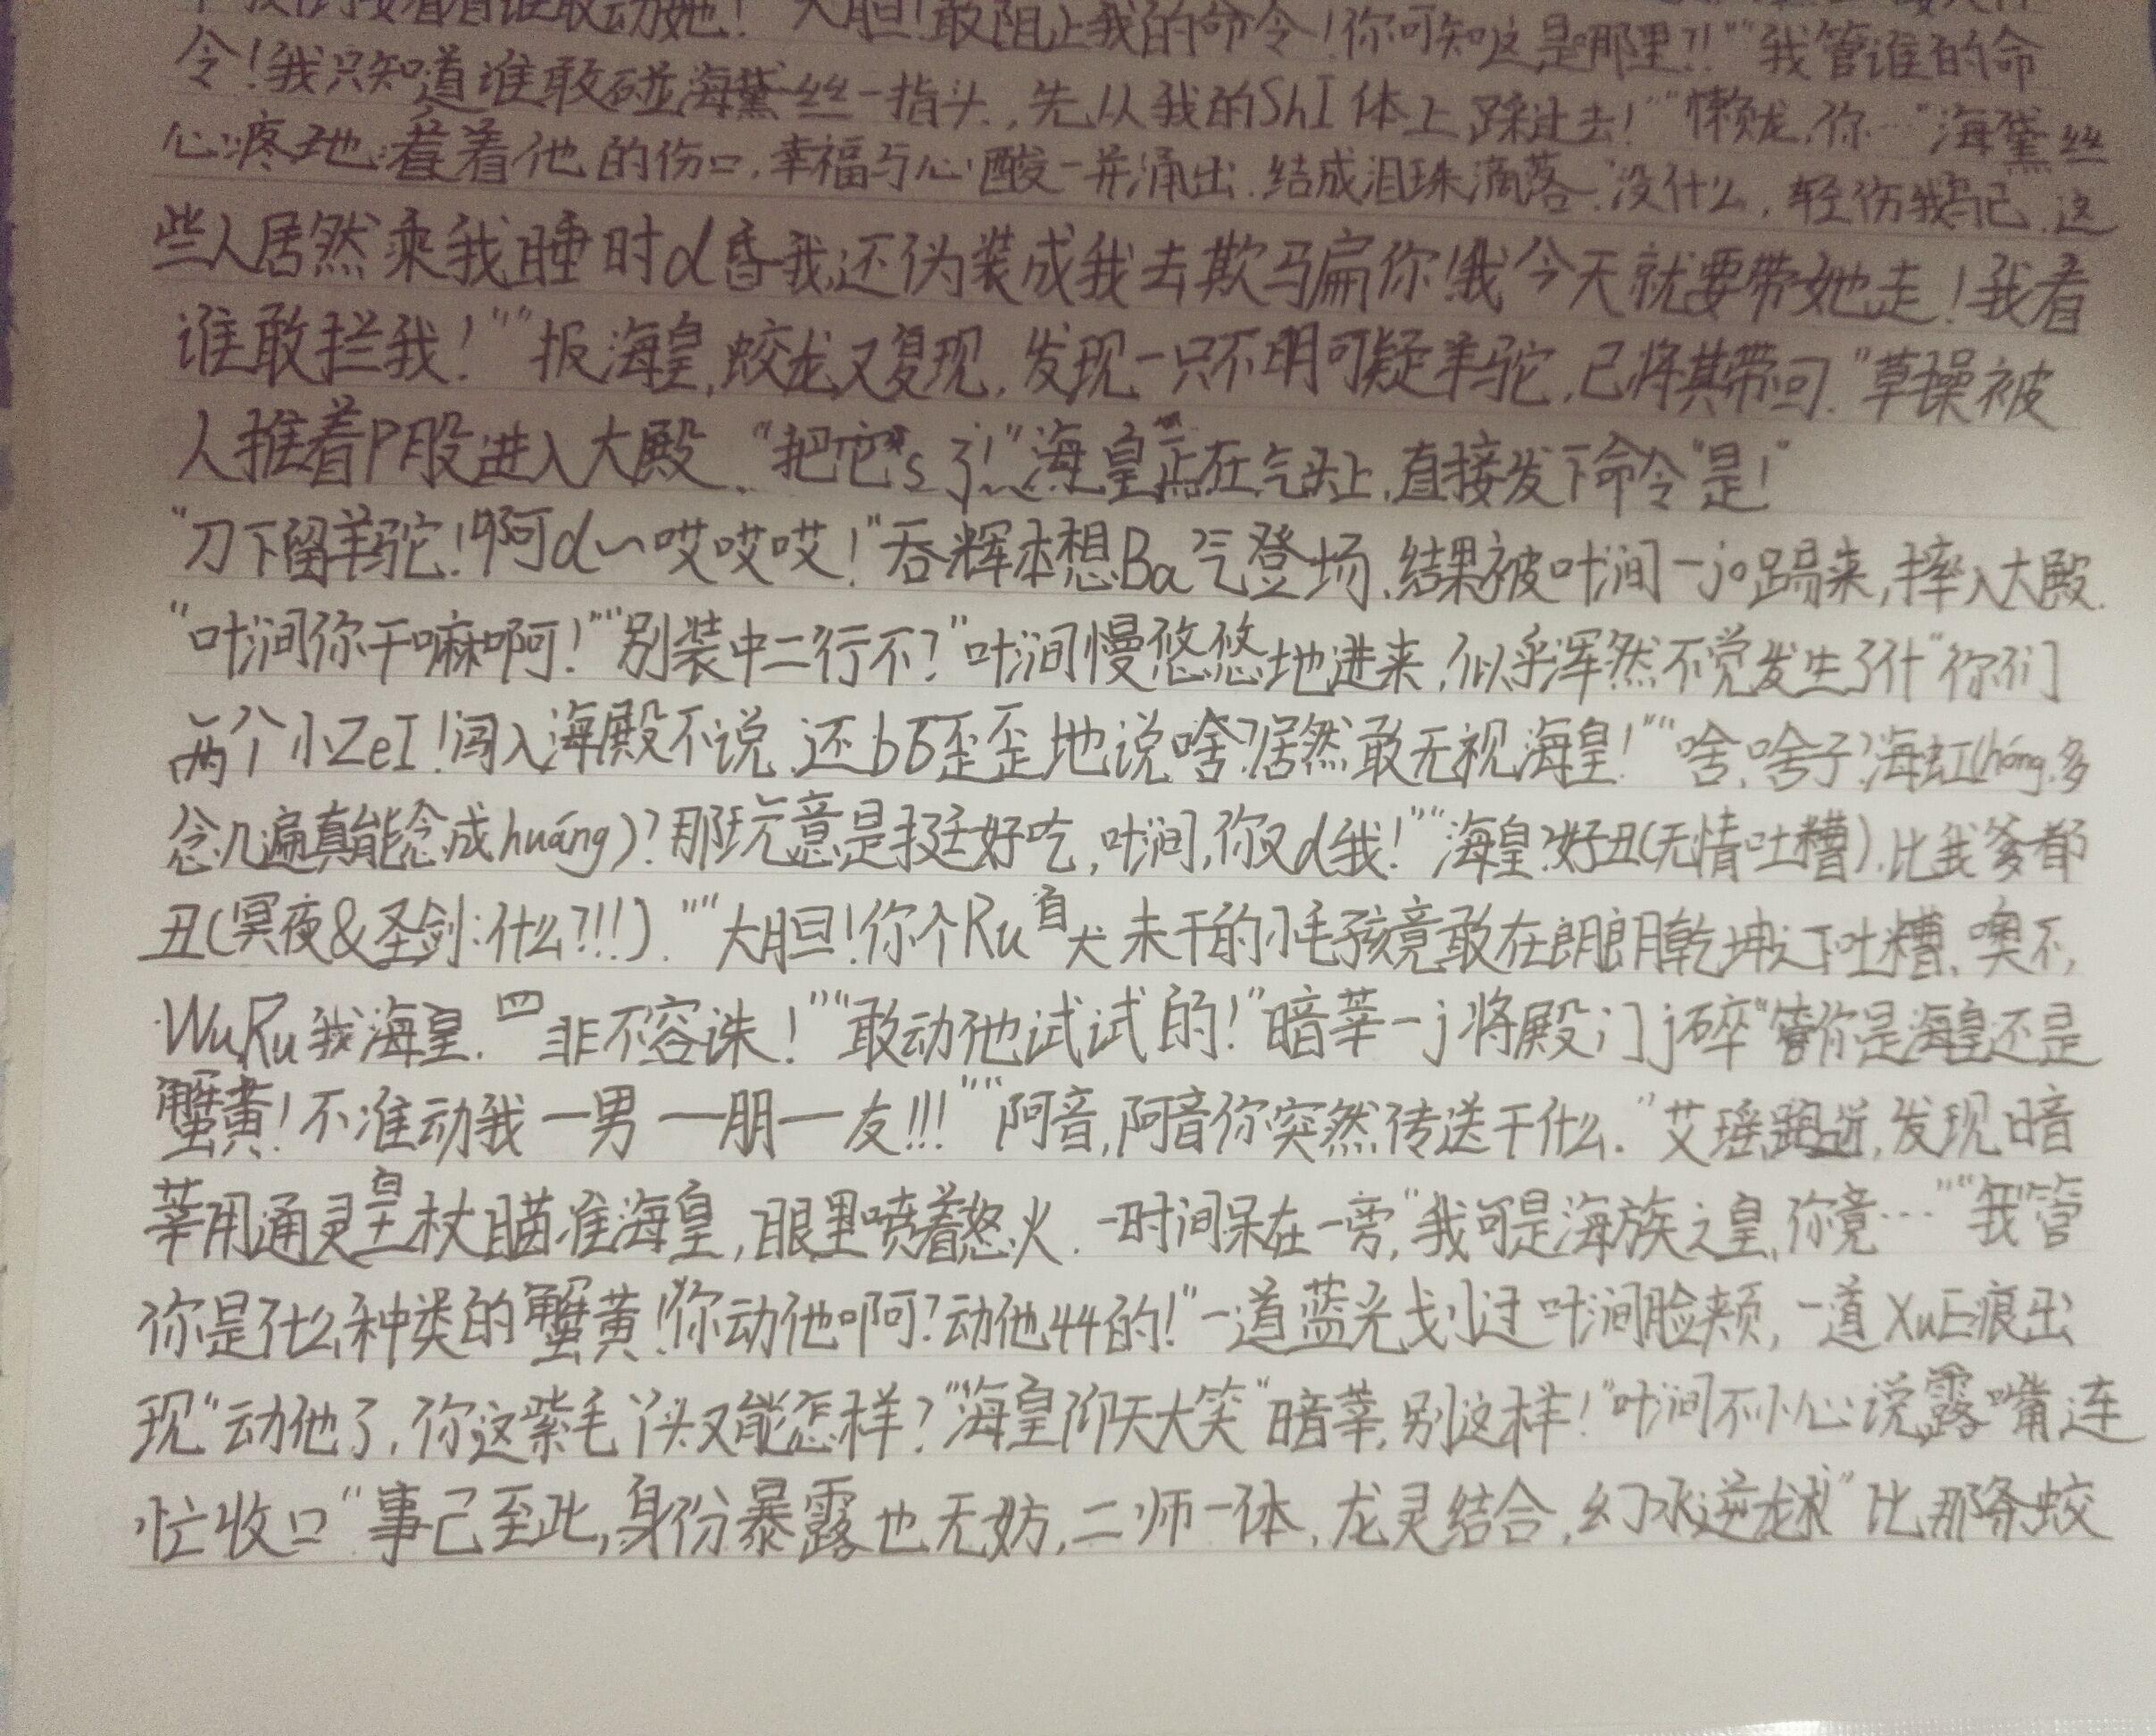 看看谁敢动她!""大胆!敢阻止我的命令!你可知这是哪里?!""我管谁的命
令!我只知道谁敢碰海黛丝一指头,先从我的ShI体上踩过去!""懒龙,你…"海黛丝
心疼地看着他的伤口,幸福与心酸一并涌出,结成泪珠滴落."没什么,轻伤我已.这
些人居然乘我睡时d昏我,还伪装成我去欺马扁你!我今天就要带她走!我看
谁敢拦我!""报海皇,蛟龙又复现,发现一只不明可疑羊驼,已将其带回."草操被
人推着P股进入大殿."把它s了!"海皇正在气头上,直接发下命令"是!"
"刀下留羊驼!啊d~哎哎哎!"吞辉本想Ba气登场,结果被叶涧一jo踢来,摔入大殿.
"叶涧你干嘛啊!""别装中二行不?"叶涧慢悠悠地进来,似乎浑然不觉发生了什"你们
两个小ZeI!闯入海殿不说,还bb歪歪地说啥?居然敢无视海皇!""啥,啥子?海虹(hóng,多
念几遍真能念成huáng)?那玩意是挺好吃,叶涧,你又d我!""海皇?好丑(无情吐糟).比我爹都
丑(冥夜&圣剑:什么?!!!).""大胆!你个Ru自犬未干的小毛孩竟敢在朗朗乾坤之下吐糟,噢不,
WuRu我海皇.罪不容诛!""敢动他试试的!"暗莘一j将殿门j碎"管你是海皇还是
蟹黄!不准动我一男一朋一友!!!""阿音,阿音你突然传送干什么."艾瑶跑进,发现暗
莘用通灵皇杖瞄准海皇,眼里喷着怒火.一时间呆在一旁,"我可是海族之皇,你竟…""我管
你是什么种类的蟹黄!你动他啊?动他44的!"一道蓝光划过叶涧脸颊,一道XuE痕出
现"动他了,你这紫毛丫头又能怎样?"海皇仰天大笑"暗莘,别这样!"叶涧不小心说露嘴,连
忙收口"事已至此,身份暴露也无妨,二师一体,龙灵结合,幻水逆龙术"比那条蛟